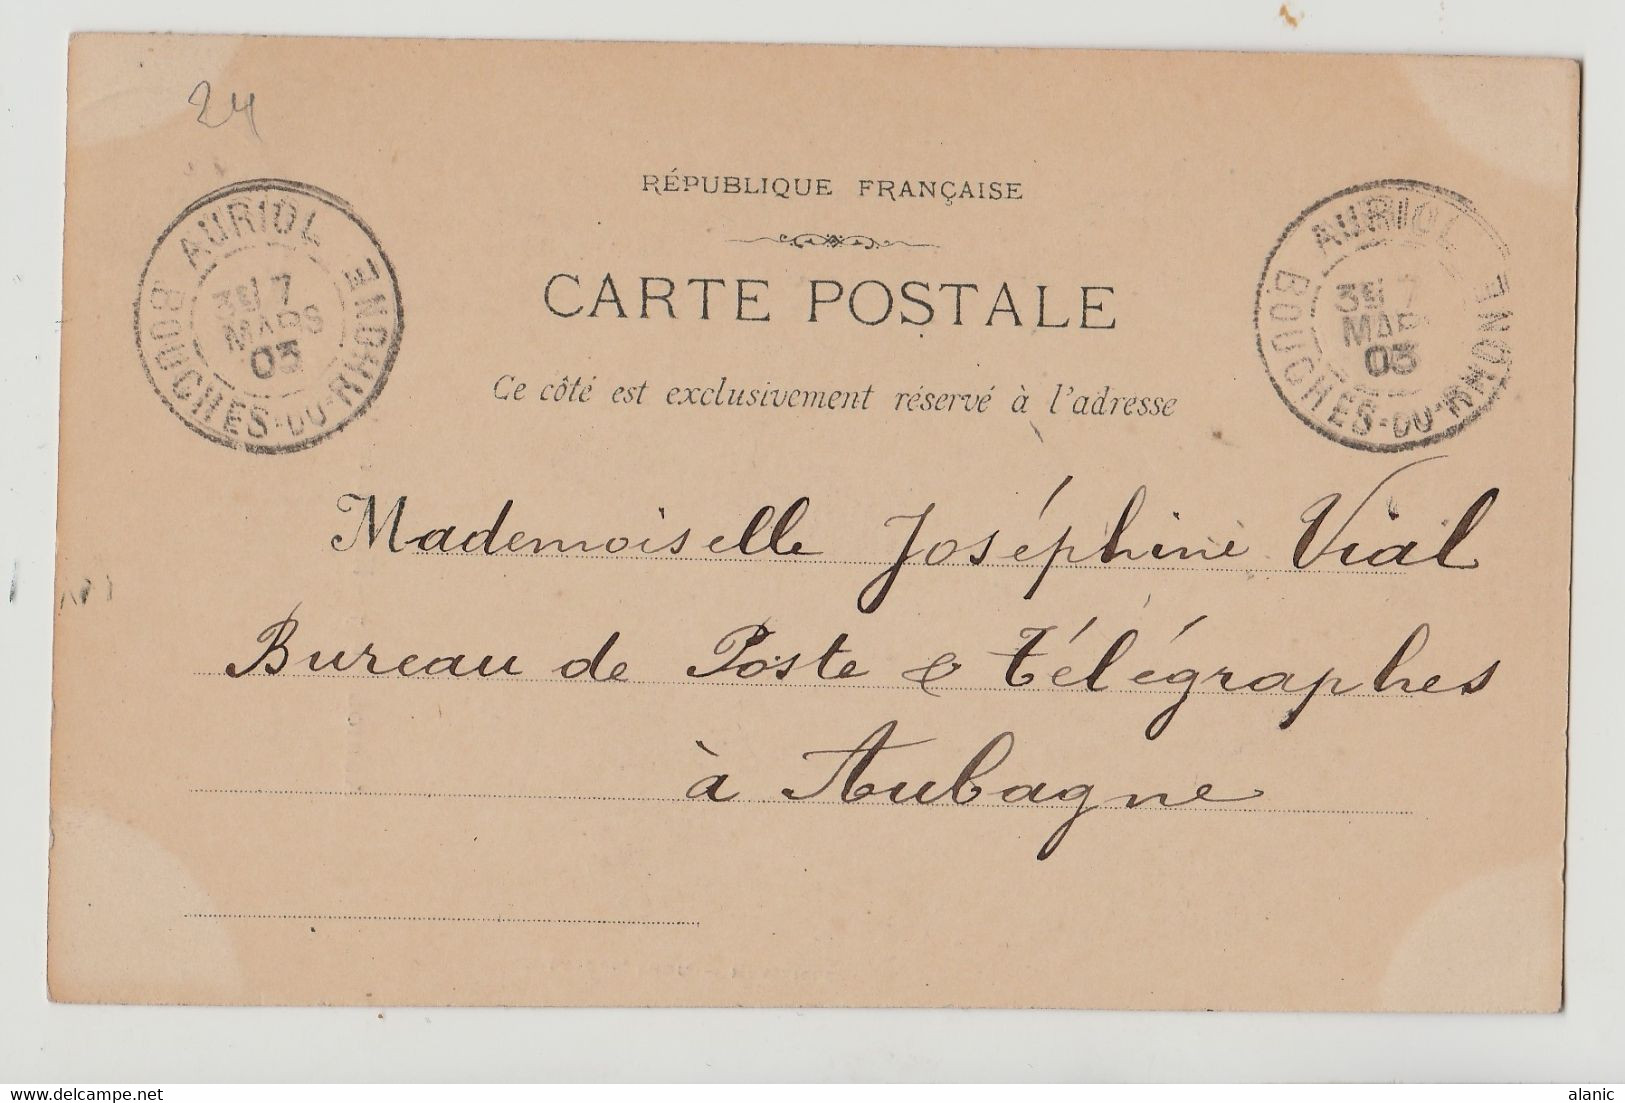 24
RÉPUBLIQUE FRANÇAISE
CARTE POSTALE
Ce côté est exclusivement réservé à l'adresse
AURIOL
3E 7
MARS
03
BOUCHES-DU-RHONE
AURIOL
3E 7
MAR
03
BOUCHES-DU-RHONE
Mademoiselle Joséphine Vial
Bureau de Poste & Télégraphes
à Aubagne
alanic